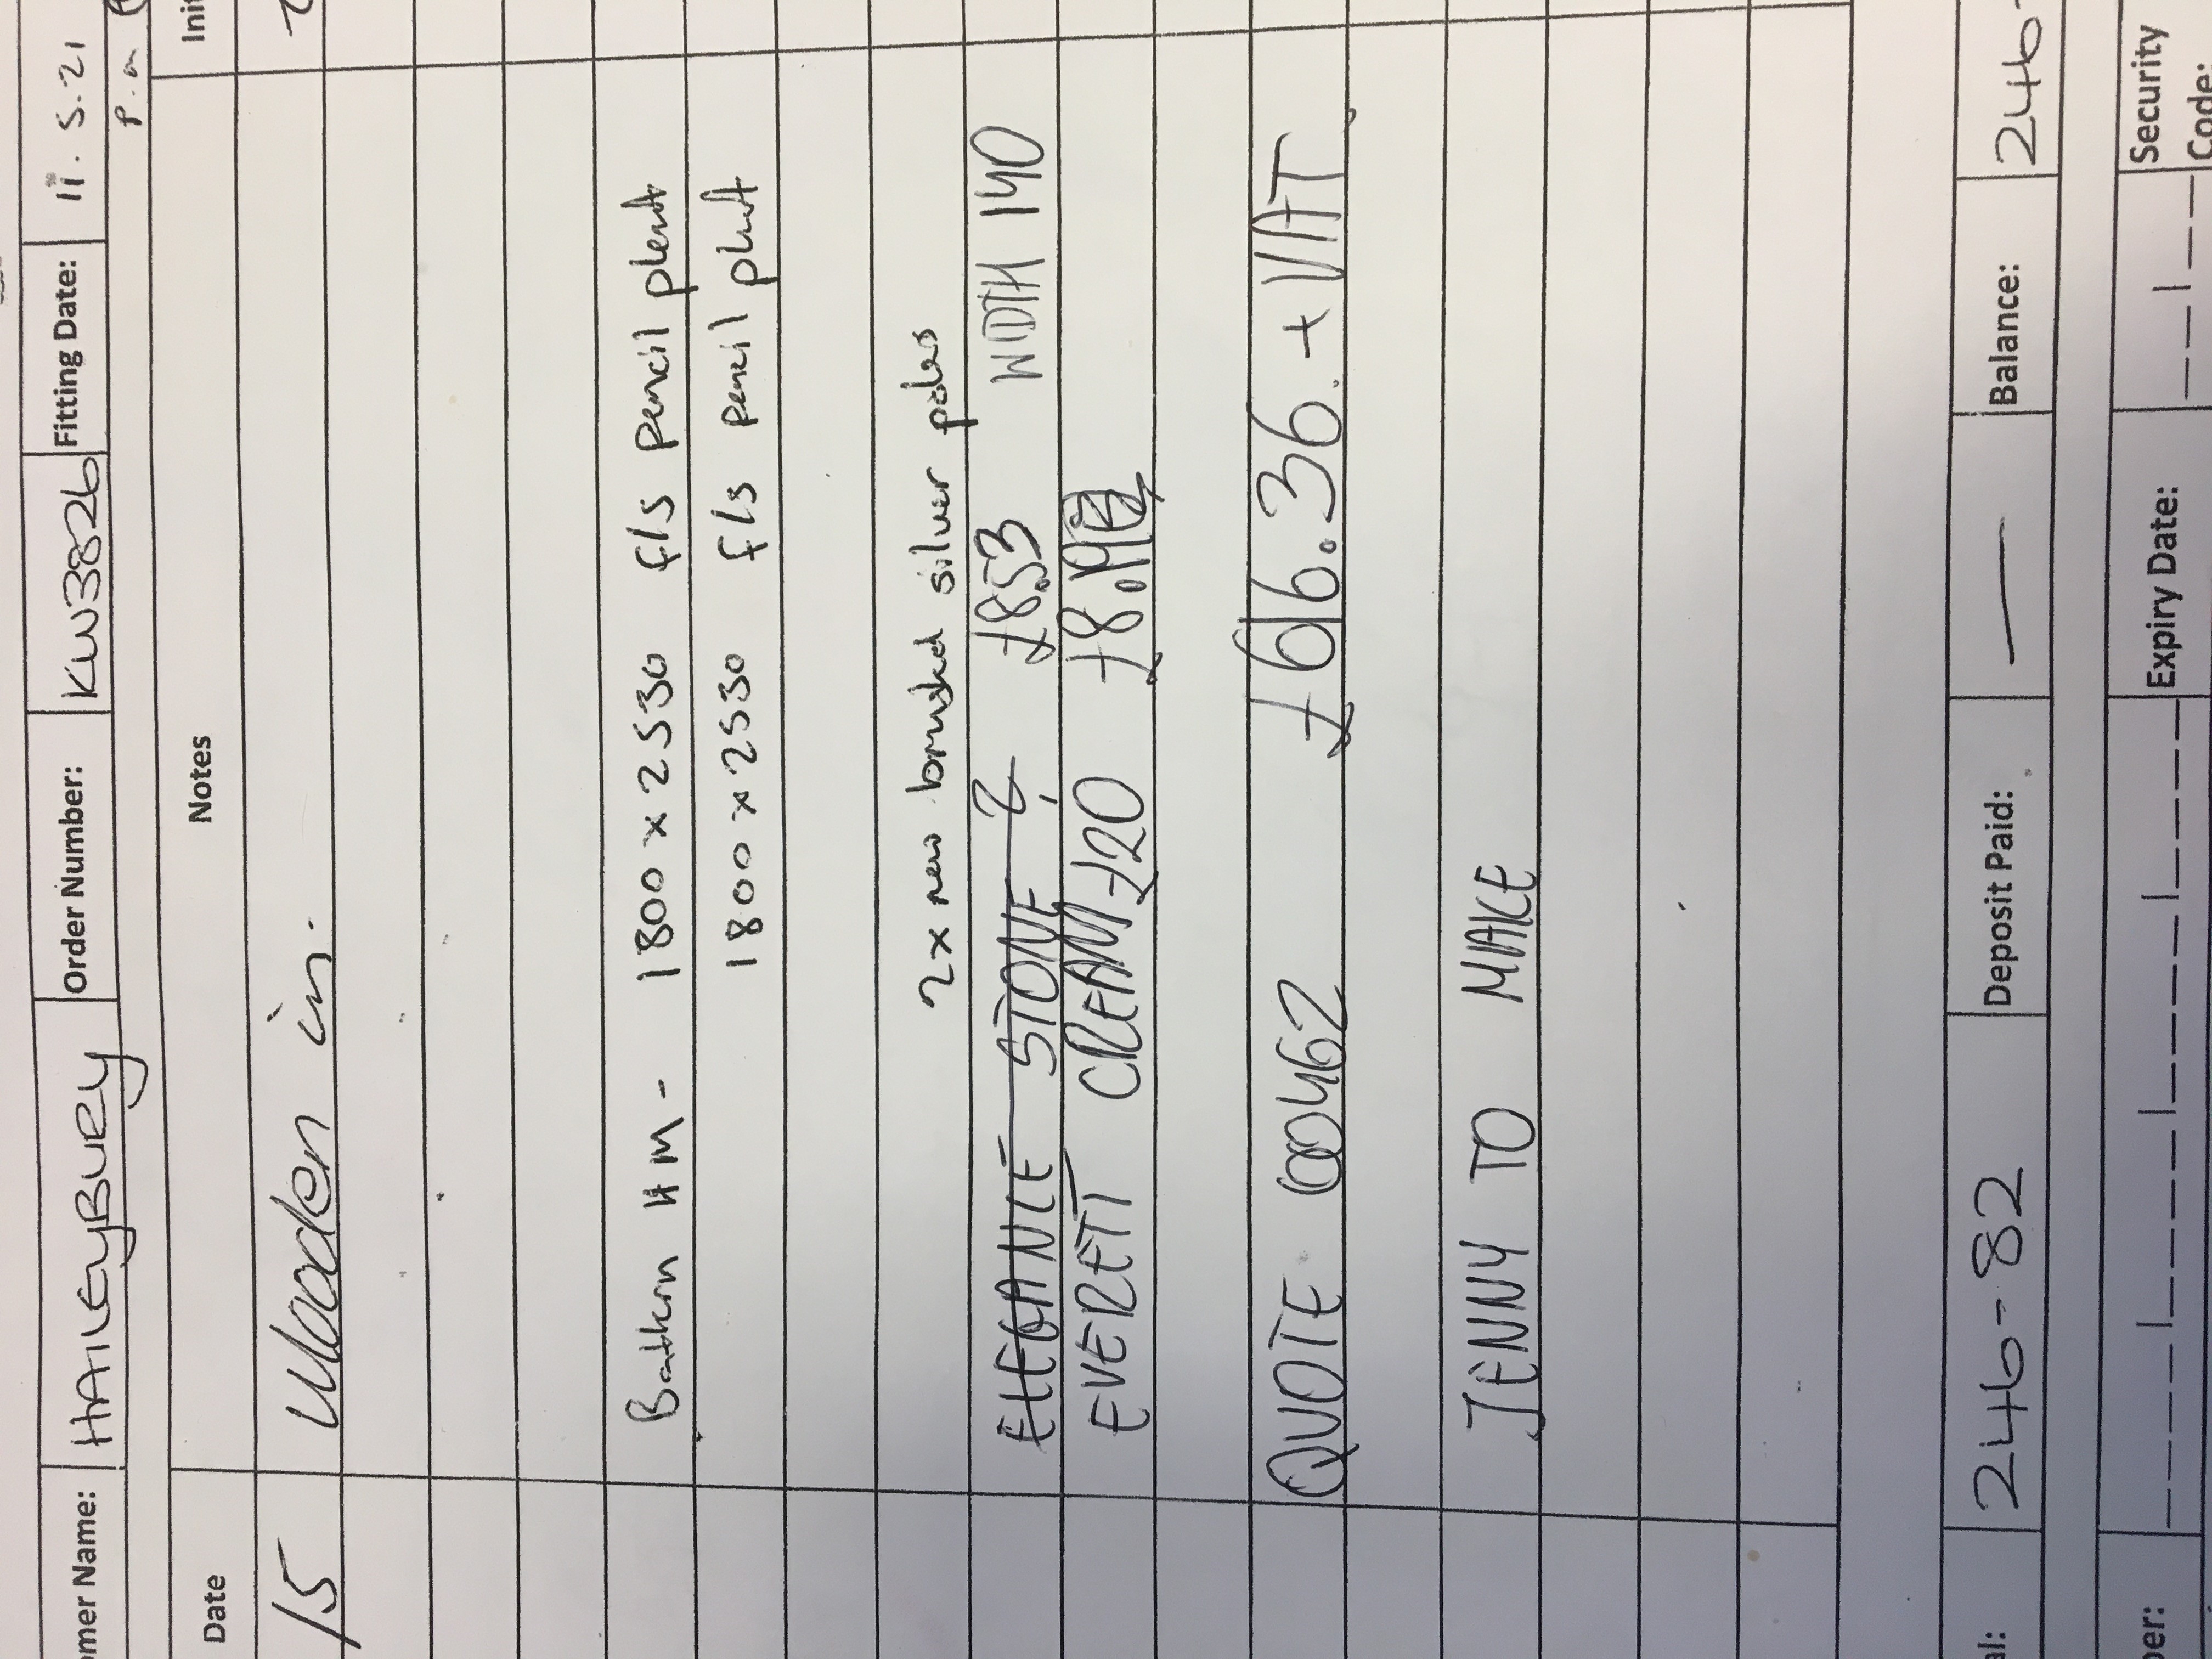 omer Name: HAILEYBURY Order Number: KW3826 Fitting Date: 11.5.21
p.m
Date Notes Init
/5 in.
HM - 1800 x 2530 f/s pencil pleat
1800 x 2530 f/s pencil pleat
2x new brushed silver poles
ELEGANCE STONE £8.53 WIDTH 140
EVERETT CREAM £20 £8.
QUOTE 00462 £616.36. + VAT
JENNY TO MAKE
al: 246-82 Deposit Paid: — Balance: 246-
ber: Expiry Date: Security
Code: